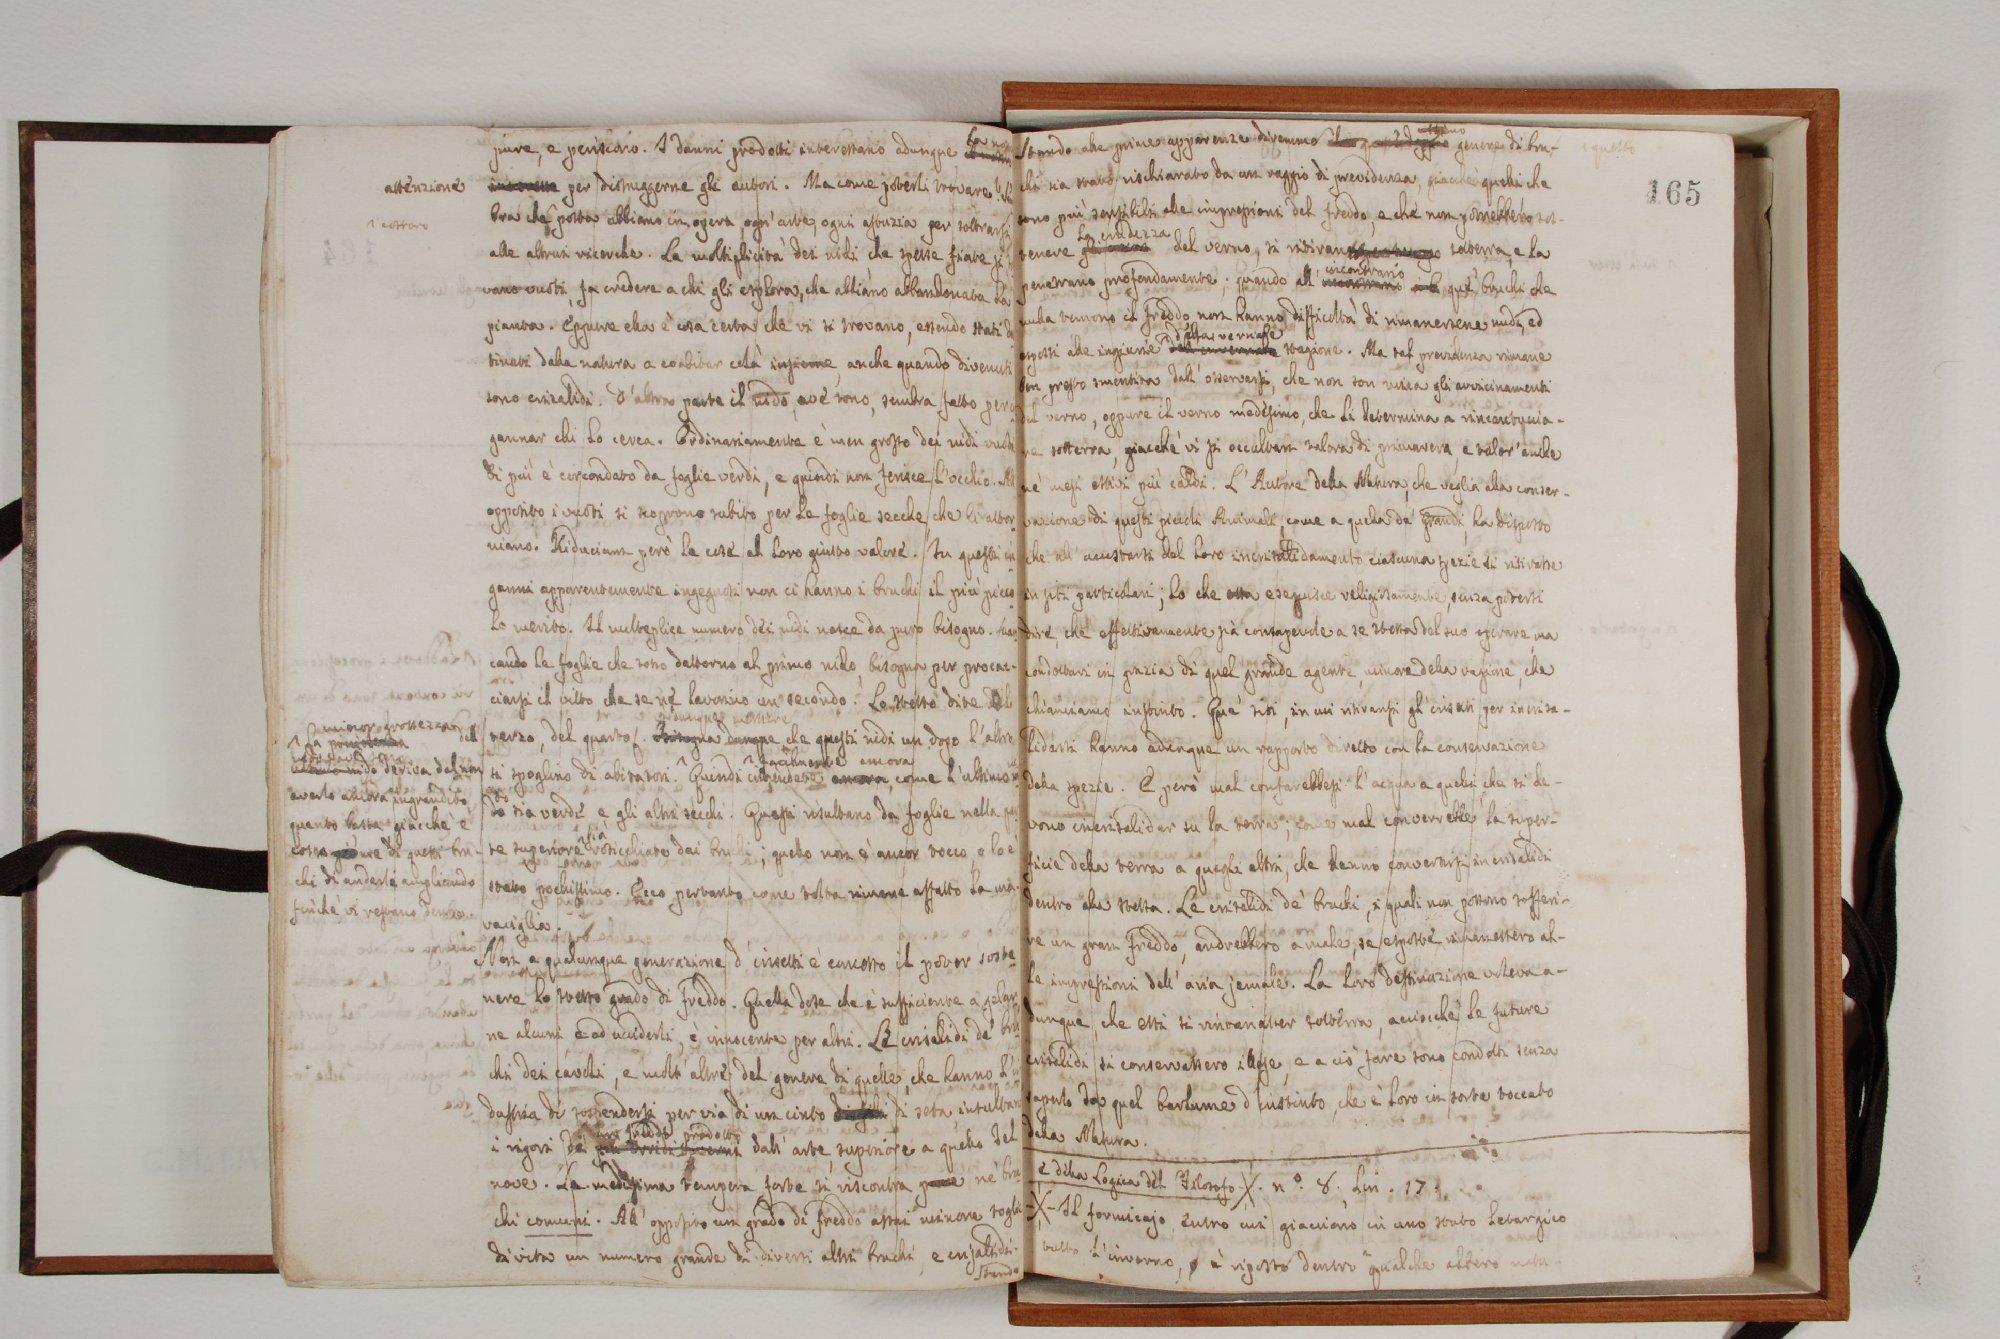 pure, e periscono. I danni prodotti interessano adunque la nostra
attenzione per distruggerne gli autori. Ma come poterli trovare? Sem
bra che costoro abbiano in opera ogn' arte, ogni astuzia per sottrarsi
alle altrui ricerche. La moltiplicità dei nidi che spesse fiate si tro
vano vuoti, fa credere a chi gli esplora, che abbiano abbandonata la
pianta. Eppure ella è cosa certa che vi si trovano, essendo stati de
stinati dalla natura a coabitar colà insieme, anche quando divenuti
sono crisalidi. D'altra parte il nido, ov'è sono, sembra fatto per in
gannar chi lo cerca. Ordinariamente è men grosso dei nidi vuoti
di più è circondato da foglie verdi, e quindi non ferisce l'occhio. All'
opposito i vuoti si scoprono subito per le foglie secche, che li attor
niano. Riduciam però le cose al loro giusto valore. In questi in
ganni apparentemente ingegnosi non ci hanno i bruchi il più picco
lo merito. Il molteplice numero dei nidi nasce da puro bisogno. Man
cando le foglie che sono dattorno al primo nido, bisogna per procac-
ciarsi il vitto che se ne lavorino un secondo. Lo stesso dite del
terzo, del quarto
che questi nidi un dopo l'altro
si spoglino di abitatori. Quindi facilmente ancora come l'ultimo ni
do sia verde e gli altri secchi. Questi risultano da foglie nella par
te superiore già rosicchiate dai bruchi; quello non è ancor tocco, o lo è
stato pochissimo. Ecco pertanto come tolta rimane affatto la ma
raviglia.
minor grossezza del
nido deriva dal non
averlo ancora ingrandito
quanto basta giacchè è
di questi bru-
chi di andarli ampliando
finchè vi restano dentro.
Non a qualunque generazione d' insetti è concesso il poter soste
nere lo stesso grado di freddo. Quella dose che è sufficiente a gelar
ne alcuni e ad ucciderli, è innocente per altri. Le crisalidi de' bru
chi dei cavoli, e molti altre del genere di quelle, che hanno l'in
dustria di sospendersi per via di un cinto di seta insultano
i rigori di un freddo prodotto dall' arte, superiore a quello del
nove. La medesima tempra forse si riscontra ne' bru
chi comuni. All' opposito un grado di freddo assai minore toglie
di vita un numero grande di diversi altri bruchi, e crisalidi.
Stando
165
Stando alle prime apparenze diremmo genere di bru-
chi sia stato rischiarato da un raggio di previdenza, giacchè quelli che
sono più sensibili alle impressioni del freddo, e che non potrebbero sos-
tenere la crudezza del verno, si ritirano sotterra, e la
penetrano profondamente; quando all' incontrario que' bruchi che
nulla temono il freddo non hanno difficoltà di rimanersene nudi, ed
esposti alle ingiurie della vernale stagione. Ma tal previdenza rimane
ben presto smentita dall' osservarsi, che non son mica gli avvicinamenti
del verno, oppure il verno medesimo, che li determina a rincantuccia-
re sotterra, giacchè vi si occultano talora di primavera, e talor' anche
ne' mesi estivi più caldi. L' Autore della Natura, che veglia alla conser-
vazione di questi piccoli Animali, come a quella de' grandi, ha disposto
che all' accostarsi del loro incrisalidamento ciascuna spezie si ritirasse
in siti particolari; lo che eseguisce religiosamente, senza potersi
dire, che effettivamente sia consapevole a se stessa del suo operare, ma
condottavi in grazia di quel grande agente, minore della ragione, che
chiamiamo instinto. Que' siti, in cui ritiransi gl' insetti per incrisa-
lidarsi hanno adunque un rapporto diretto con la conservazione
della spezie. E però mal confarebbesi l' acqua a quelli, che si de-
vono incrisalidar su la terra, come mal converrebbe la super-
ficie della terra a quegli altri, che hanno convertirsi in crisalidi
dentro alla stessa. Le crisalidi de' bruchi, i quali non possono soffri-
re un gran freddo, andrebbero a male, se esposte rimanessero al-
le impressioni dell' aria jemale. La loro destinazione voleva a-
dunque, che essi si rintanasser sotterra, acciocchè le future
crisalidi si conservassero illese, e a ciò fare sono condotti senza
saperlo da quel barlume d' instinto, che è loro in sorte toccato
dalla Natura.
e della Logica del Filosofo X. n.° 8. Lin. 17.
-X- Il formicajo, entro cui giacciono in uno stato letargico
tutto l' inverno, è riposto dentro qualche albero natu-